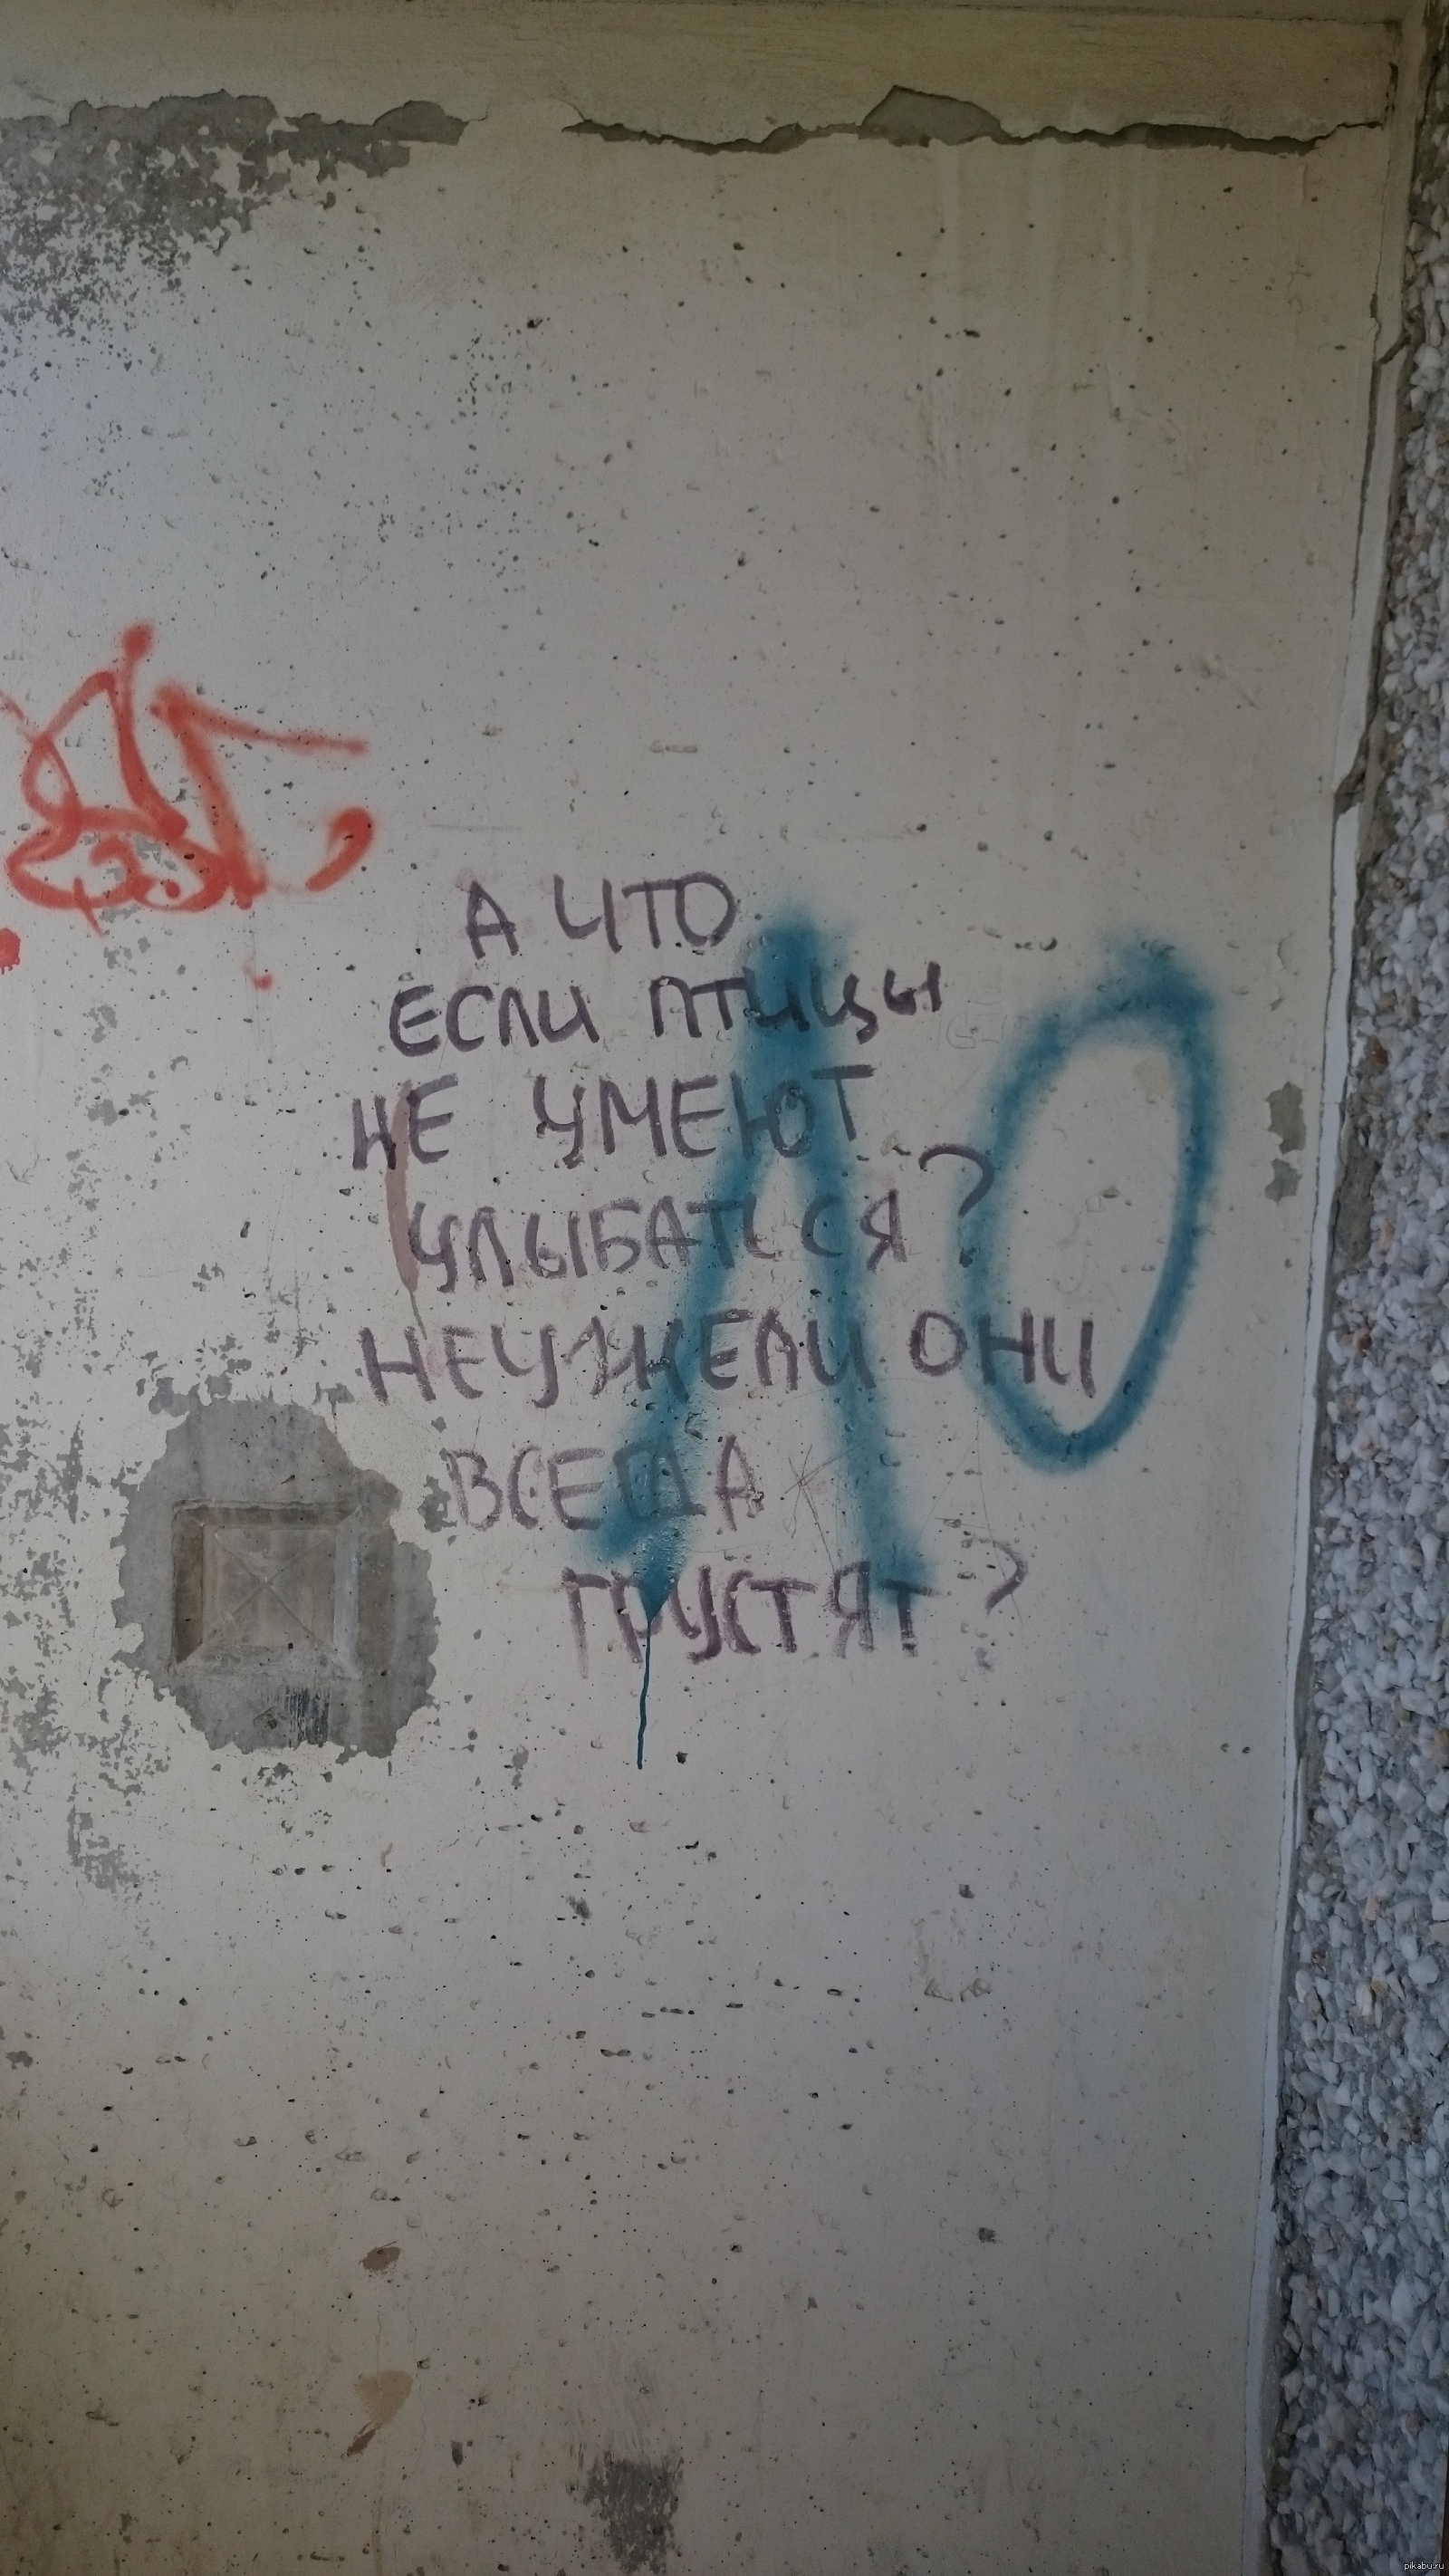 А ЧТО
ЕСЛИ ПТИЦЫ
НЕ УМЕЮТ
УЛЫБАТЬСЯ?
НЕУЖЕЛИ ОНИ
ВСЕГДА
ГРУСТЯТ?
ЛО
pikabu.ru